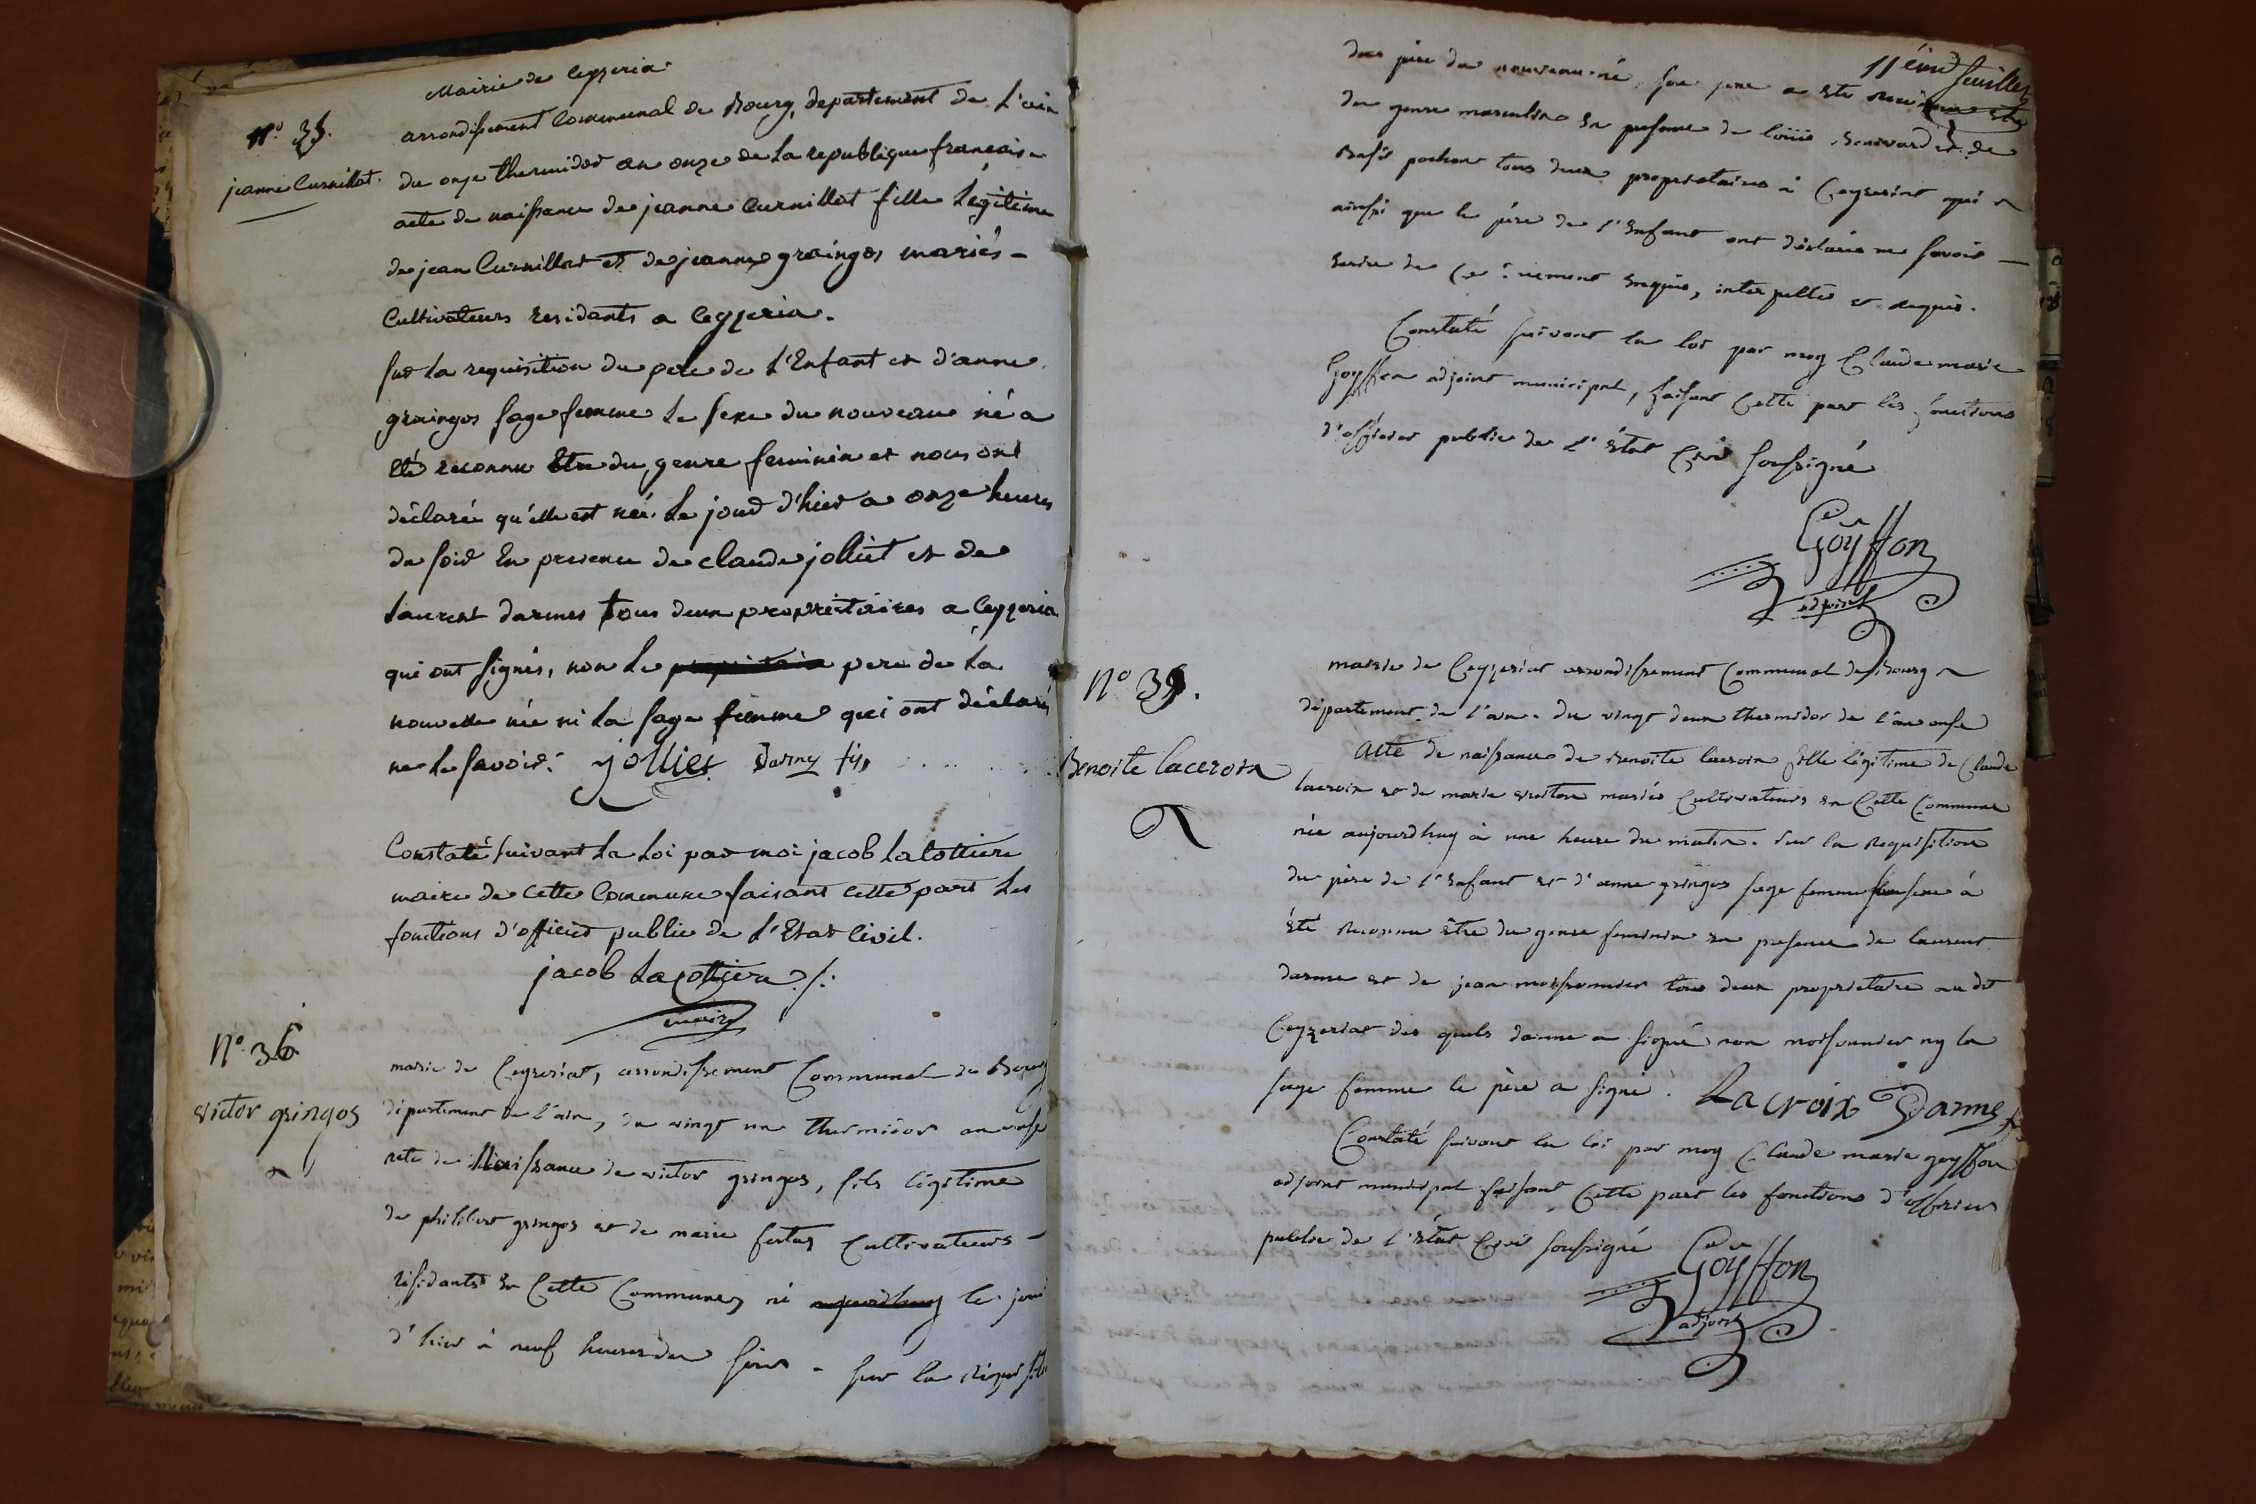 Mairie de Ceyzeria
N.º 35.
jeanne Curnillat.
arrondissement Communal de Bourg, departement de L'ain
du onze thermidor an onze de La republique francaise
acte de naissance de jeanne Curnillat fille Légitime
de jean Curnillat et de jeanne graingos mariés -
Cultivateurs residants a Ceyzeria.
Sur La requisition du pere de L'Enfant et d'anne
graingos sage femme Le sexe du nouveau né a
été reconnu être du genre feminin et nous ont
déclaré qu'elle est née Le jour d'hier a onze heures
du soir En presence de claude jolliet et de
Laurent darmes tous deux propriétaires a Ceyzeria
qui ont signés, non Le pere de La
nouvelle née ni La sage femme qui ont déclaré
ne Le savoir. jolliet Darmes fils
Constaté suivant La Loi par moi jacob Lacottiere
maire de cette Commune faisant cette part Les
fonctions d'officier public de L'Etat Civil.
jacob Lacottiere
maire
N.º 36
victor gringos
mairie de Ceyzeriat, arrondissement Communal de Bourg
département de l'ain, du vingt un thermidor an onze
acte de Naissance de victor gringos, fils légitime
de philibert gringos et de marie cultivateurs -
résidants en Cette Commune, né aujourdhuy le jour
d'hier à neuf heures du soir - sur la
11ème feuillet
du père du nouveau né, son sexe a été reconnu être
du genre masculin en presence de louis et de
pochon tous deux propriétaires à Ceyzeriat qui
ainsi que le père de l'Enfant ont déclaré ne savoir -
écrire de ce enquis, interpellés et requis.
Constaté suivant la loi par moy Claude marie
Goyffon adjoint municipal, faisant Cette part les fonctions
d'officier public de l'état Civil soussigné
Goÿffon
adjoint
N.º 39.
Benoite Lacroix
mairie de Ceyzeriat arrondissement Communal de Bourg
département de l'ain. du vingt deux thermidor de l'an onze
Acte de naissance de Benoite lacroix fille légitime de Claude
lacroix et de marie mariés Cultivateurs en Cette Commune
née aujourdhuy à une heure du matin. sur la Requisition
du père de l'Enfant et d'anne gringos sage femme sexe à
été reconnu être du genre feminin en presence de laurent
darme et de jean moissonnier tous deux propriétaire au dit
Ceyzeriat des quels darme a signé non moissonnier ny la
sage femme le père a signé. Lacroix Darmes
Constaté suivant la loi par moy Claude marie goyffon
adjoint municipal faisant Cette part les fonctions d'officier
public de l'état Civil soussigné Goÿffon
adjoint